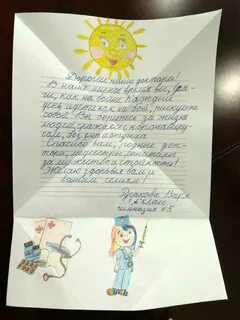 Дорогие наши доктора!
В наше мирное время вы, вра-
чи, как на войне. Каждый
день идёте как на бой, рискуете
собой. Вы боретесь за жизнь
людей, сражаясь с коронавиру-
сом, без сна и отдыха.
Спасибо вам, родные док-
тора, медсёстры, санитары,
за мужество и стойкость!
Желаю здоровья вам и
вашим семьям!
Варя.
класс
гимназия №5